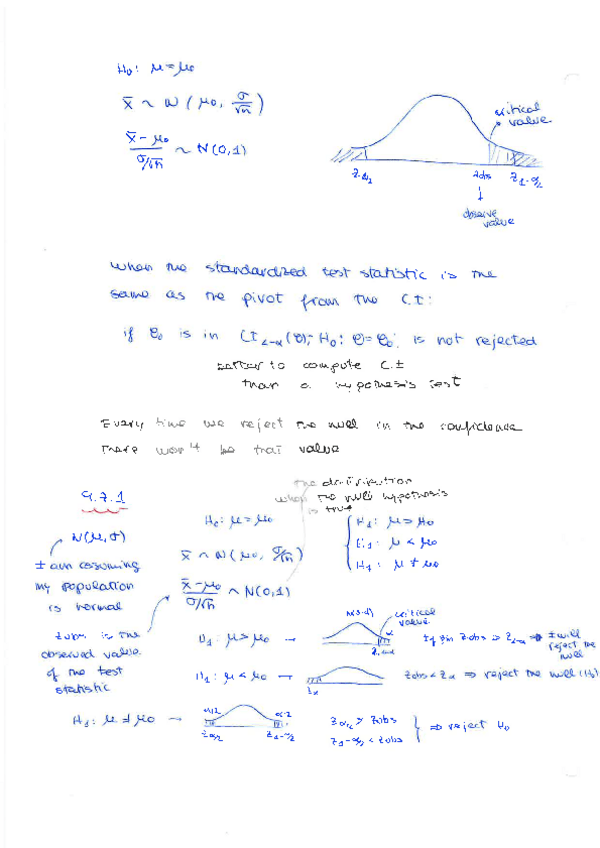 H₀: μ = μ₀
x̄ ~ N (μ₀, σ/√n)
x̄ - μ₀ / σ/√n ~ N(0,1)
critical value
z α/2 zobs z 1-α/2
observe value
when the standardized test statistic is the
same as the pivot from the C.I:
if θ₀ is in CI 1-α (θ); H₀: θ = θ₀; is not rejected
better to compute C.I
than a hypothesis test
Every time we reject the null in the confidence
there won't be that value
the distribution
when the null hypothesis
is true
9.7.1
H₀: μ = μ₀
H₁: μ > μ₀
H₁: μ < μ₀
H₁: μ ≠ μ₀
N(μ, σ)
I am assuming
my population
is normal
x̄ ~ N(μ₀, σ/√n)
x̄ - μ₀ / σ/√n ~ N(0,1)
zobs is the
observed value
of the test
statistic
H₁: μ > μ₀ →
N(0,1) critical value
α
z 1-α
zobs > z 1-α ⇒ I will
reject the
null
H₁: μ < μ₀ →
zα
zobs < zα ⇒ reject the null (H₀)
H₁: μ ≠ μ₀ →
α/2 α/2
z α/2 z 1-α/2
z α/2 > zobs
z 1-α/2 < zobs
⇒ reject H₀